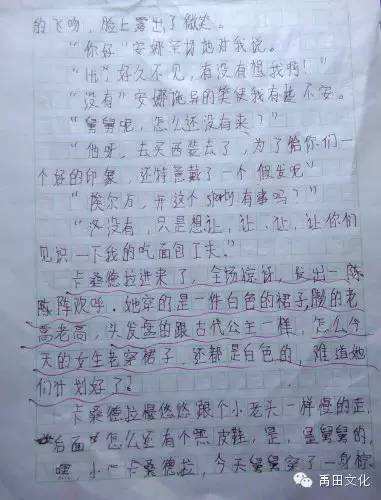 的飞吻，脸上露出了微笑。
“你好”安娜平场地对我说。
“出”好久不见，有没有想我啊！”
“没有”安娜诡异的笑使我有些不安。
“舅舅呢，怎么还没有来？”
“他呀，去买西装去了，为了给你们一
个好的印象，还特意戴了一个假发呢”
“埃尔厄，开这个 party 有事吗？”
“没有，只是想让，让，让，让你们
见识一下我的吃面包工夫。”
卡桑德拉进来了，全场惊讶，发出一阵
阵阵欢呼。她穿的是一件白色的裙子，撇的老
高老高，头发盘的跟古代公主一样，怎么今
天的女生老穿裙子，还都是白色的，难道她
们计划好了？
卡桑德拉慢悠悠跟个小老头一样慢的走，
后面怎么还有个黑皮鞋，是，是舅舅的，
嘿，小心卡桑德拉，今天舅舅穿了一身棕
甬田文化